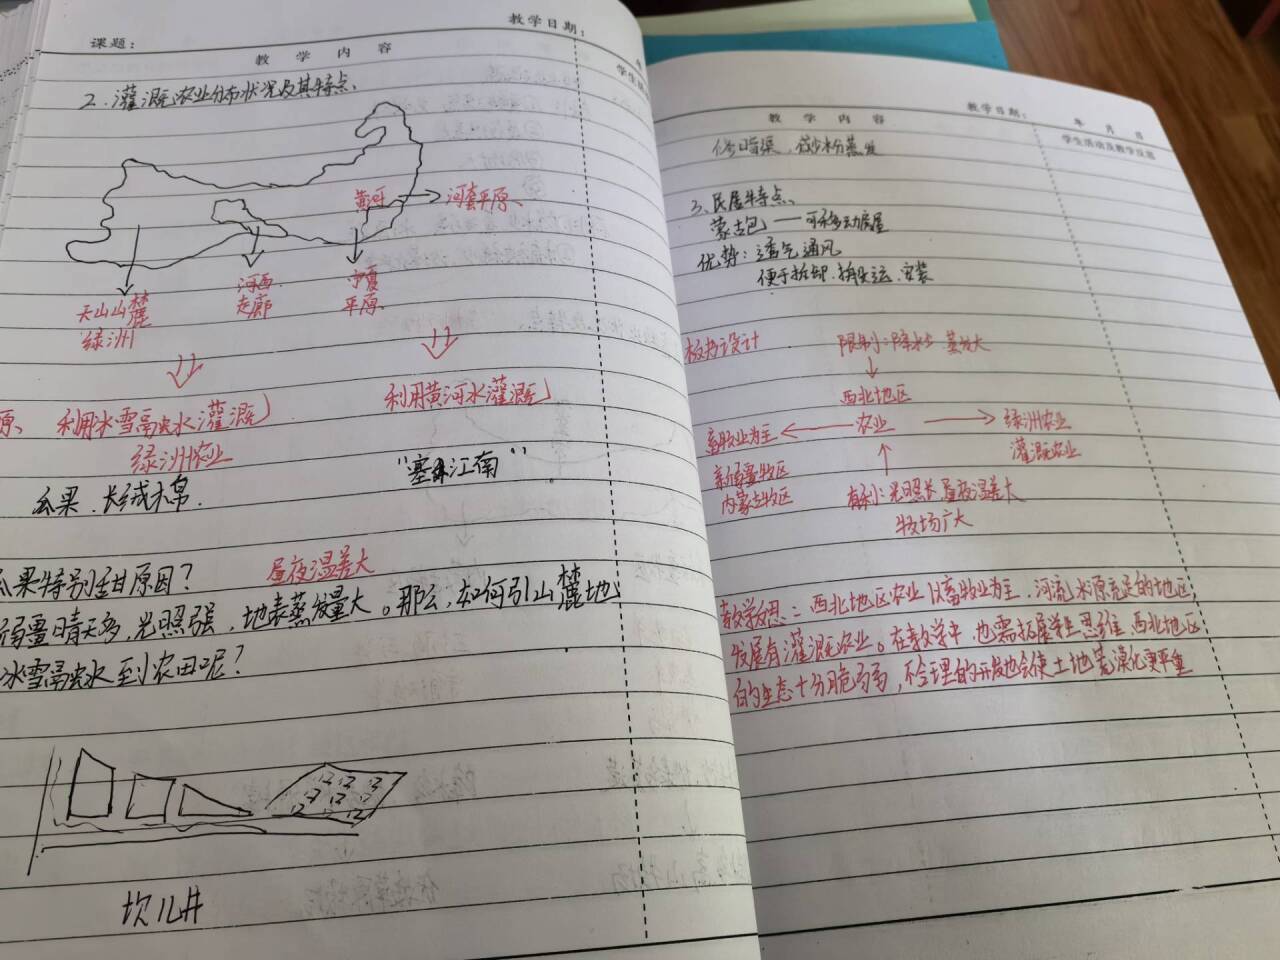 教学日期:
课题:
教 学 内 容
2、灌溉农业分布状况及其特点、
黄河 河套平原、
天山山麓
绿洲
河西
走廊
宁夏
平原、
原、利用冰雪融水灌溉
利用黄河水灌溉
绿洲农业
"塞外江南"
瓜果、长绒棉.
瓜果特别甜原因? 昼夜温差大
新疆晴天多,光照强,地表蒸发量大。那么,如何引山麓地
冰雪融水到农田呢?
坎儿井
教学日期: 年 月 日
教 学 内 容
学生活动及教学反思
修暗渠,减少水分蒸发
3、民居特点、
蒙古包——可移动房屋
优势:透气通风
便于拆卸、搬运、安装
板书设计
限制:降水少 蒸发大
西北地区
畜牧业为主 农业 绿洲农业
灌溉农业
新疆牧区
内蒙古牧区
有利:光照长 昼夜温差大
牧场广大
教学反思:西北地区农业以畜牧业为主,河流水源充足的地区,
发展有灌溉农业。在教学中,也需拓展学生思维,西北地区
的生态十分脆弱,不合理的开发也会使土地荒漠化更严重